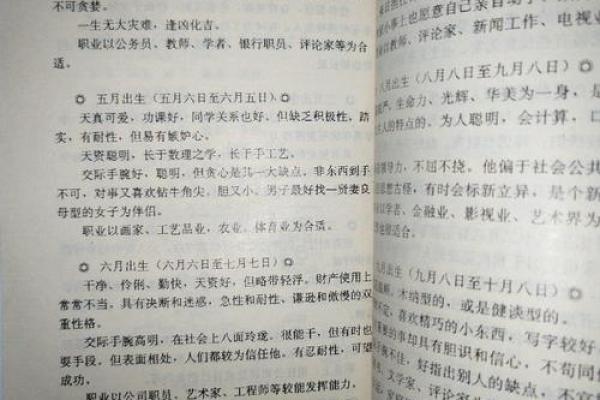 不可贪婪。
一生无大灾难，逢凶化吉。
职业以公务员、教师、学者、银行职员、评论家等为合
适。
◎ 五月出生（五月六日至六月五日）◎
天真可爱，功课好，同学关系也好。但缺乏积极性，踏
实，有耐性，但易有嫉妒心。
天资聪明，长于数理之学，长于手工艺。
交际手腕好，聪明，但贪心是其一大缺点，非东西到手
不可，对事又喜欢钻牛角尖，胆又小。男子最好找一贤妻良
母型的女子为伴侣。
职业以画家、工艺品业，农业、体育业为合适。
◎ 六月出生（六月六日至七月七日）◎
干净、伶俐、勤快，天资好，但略带轻浮。财产使用上
常常不当。具有决断和迷惑，急性和耐性、谦逊和傲慢的双
重性格。
交际手腕高明，在社会上八面玲珑。很能干，但有时也
要手段。但表面相处，人们都较为信任他。有忍耐性，可望
成功。
职业以公司职员、艺术家、工程师等较能发挥能力，
小事上也愿意自己亲自动手
以教师、评论家、新闻工作、电视业
八月出生（八月八日至九月八日）◎
严，生命力、光辉、华美为一身，是
生人的特点的。为人聪明，会计算，口
领导力，不屈不挠。他偏于社会公共
思想古怪，有时会标新立异，是个新
以学者、金融业、影视业、艺术界为
也很适合。
九月出生（九月八日至十月八日）◎
细腻，木纳型的，或是健谈型的。
不定，喜欢精巧的小东西，写字较好
要的事却具有胆识和信心，不苟同
手腕不佳，好指出别人的缺点，不宜
文学家、评论家